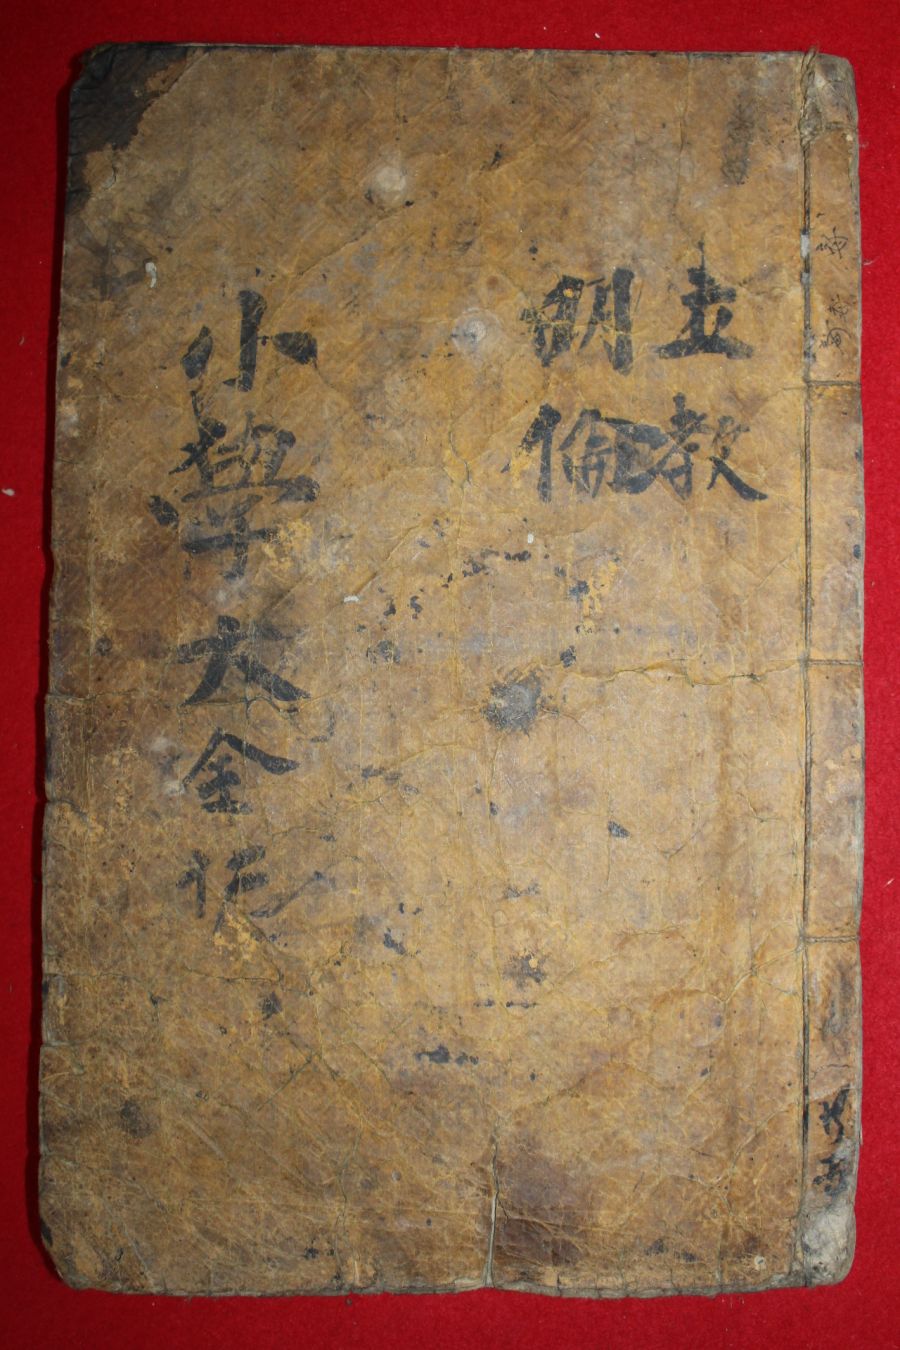 立教
明倫
小學大全